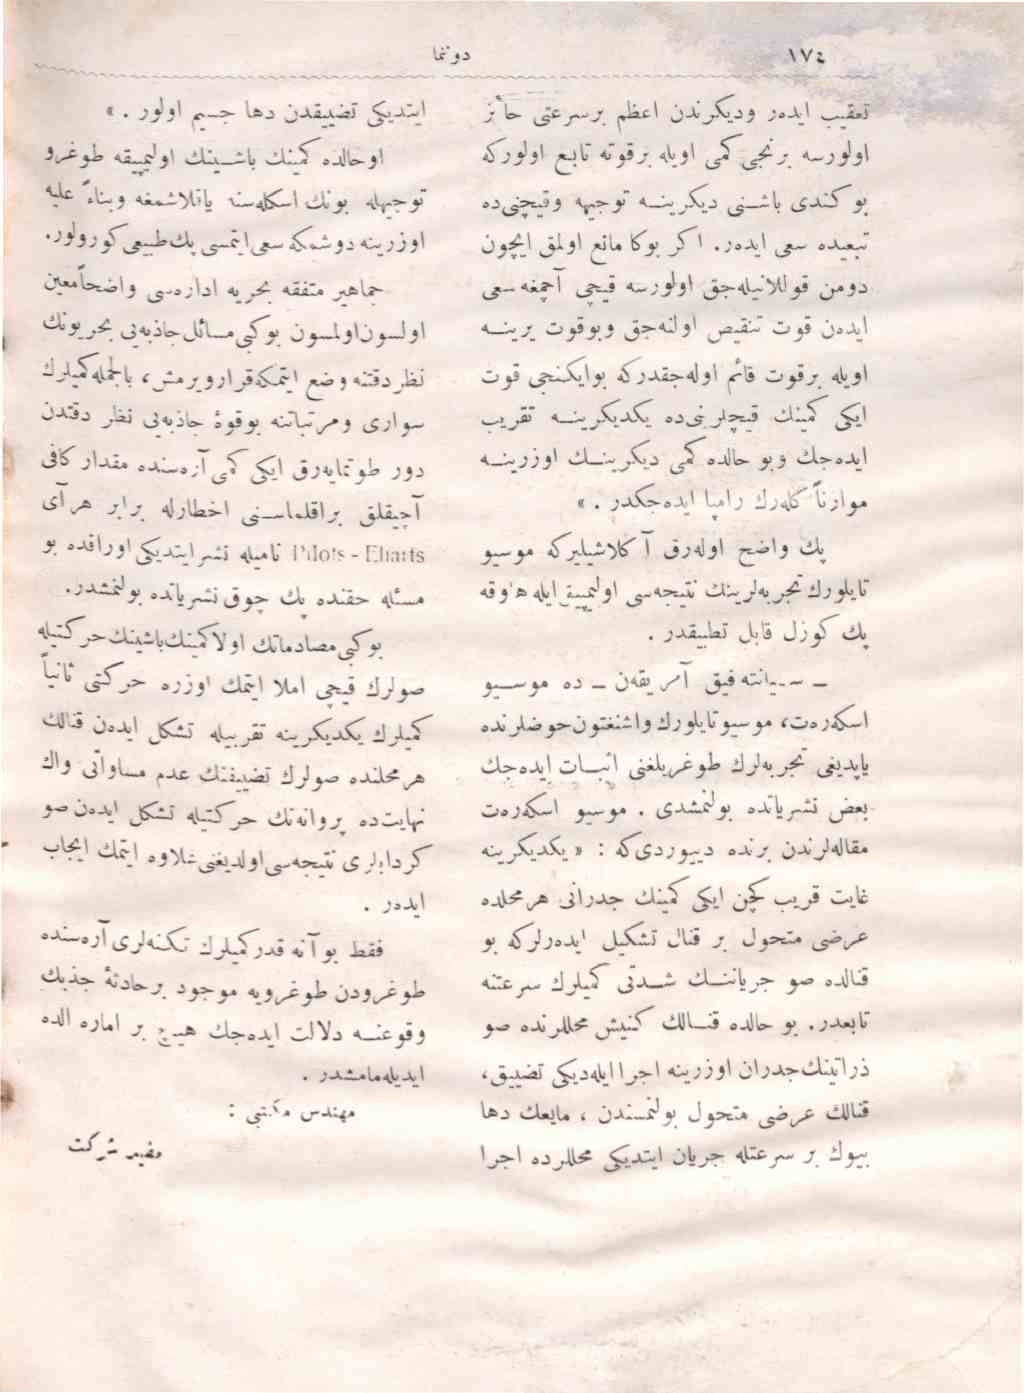 ١٧٤
دوننما
تعقيب ايده‌ر وديكرندن اعظم برسرعتى حائز
اولورسه برنجى كمى اويله برقوته تابع اولوركه
بو كندى باشنى ديكرينه توجيهه وقيچنى‌ده
تبعيده سعى ايده‌ر. اكر بوكا مانع اولمق ايچون
دومن قوللانيله‌جق اولورسه قيچى آچمغه سعى
ايده‌ن قوت تنقيص اولنه‌جق وبوقوت يرينه
اويله برقوت قائم اوله‌جقدركه بوايكنجى قوت
ايكى كمينك قيچلرينى‌ده يكديكرينه تقريب
ايده‌جك وبو حالده كمى ديكرينك اوزرينه
موازناً كله‌رك رامپا ايده‌جكدر . »
پك واضح اوله‌رق آكلاشيليركه موسيو
تايلورك تجربه‌لرينك نتيجه‌سى اوليمپيق ايله هاوقه
پك كوزل قابل تطبيقدر .
ـ سيانته فيق آمريقه‌ن ـ ده موسيو
اسكه‌ره‌ت، موسيو تايلورك واشنغتون حوضلرنده
ياپديغى تجربه‌لرك طوغريلغنى اثبات ايده‌جك
بعض نشرياتده بولنمشدى . موسيو اسكه‌ره‌ت
مقاله‌لرندن برنده دييوردى‌كه : « يكديكرينه
غايت قريب كچن ايكى كمينك جدرانى هرمحلده
عرضى متحول بر قنال تشكيل ايده‌رلركه بو
قنالده صو جرياننك شدتى كميلرك سرعتنه
تابعدر. بو حالده قنالك كنيش محللرنده صو
ذراتينك جدران اوزرينه اجرا ايله‌ديكى تضييق،
قنالك عرضى متحول بولنمسندن ، مايعك دها
بيوك بر سرعتله جريان ايتديكى محللرده اجرا
ايتديكى تضييقدن دها جسيم اولور . »
اوحالده كمينك باشينك اوليمپيقه طوغرو
توجيهله بونك اسكله‌سنه ياقلاشمغه وبناءً عليه
اوزرينه دوشمكه سعى ايتمسى پك طبيعى كورولور.
جماهير متفقه بحريه اداره‌سى واضحاً معين
اولسون اولمسون بوكبى مسائل جاذبه‌يى بحريونك
نظر دقتنه وضع ايتمكه قرارويرمش، بالجمله كميلرك
سوارى ومرتباتنه بوقوۀ جاذبه‌يى نظر دقتدن
دور طوتمايه‌رق ايكى كمى آره‌سنده مقدار كافى
آچيقلق براقلماسنى اخطارله برابر هرآى
Pilots - Eharts ناميله نشر ايتديكى اوراقده بو
مسئله حقنده پك چوق نشرياتده بولنمشدر.
بوكبى مصادماتك اولا كمينك باشينك حركتيله
صولرك قيچى املا ايتمك اوزره حركتى ثانياً
كميلرك يكديكرينه تقربيله تشكل ايده‌ن قنالك
هرمحلنده صولرك تضييقنك عدم مساواتى واك
نهايت‌ده پروانه‌نك حركتيله تشكل ايده‌ن صو
كردابلرى نتيجه‌سى اولديغنى علاوه ايتمك ايجاب
ايده‌ر .
فقط بو آنه قدر كميلرك تكنه‌لرى آره‌سنده
طوغرودن طوغرويه موجود برحادثۀ جذبك
وقوعنه دلالت ايده‌جك هيچ بر اماره الده
ايديله‌مامشدر .
مهندس مكتبى :
مفيد شركت